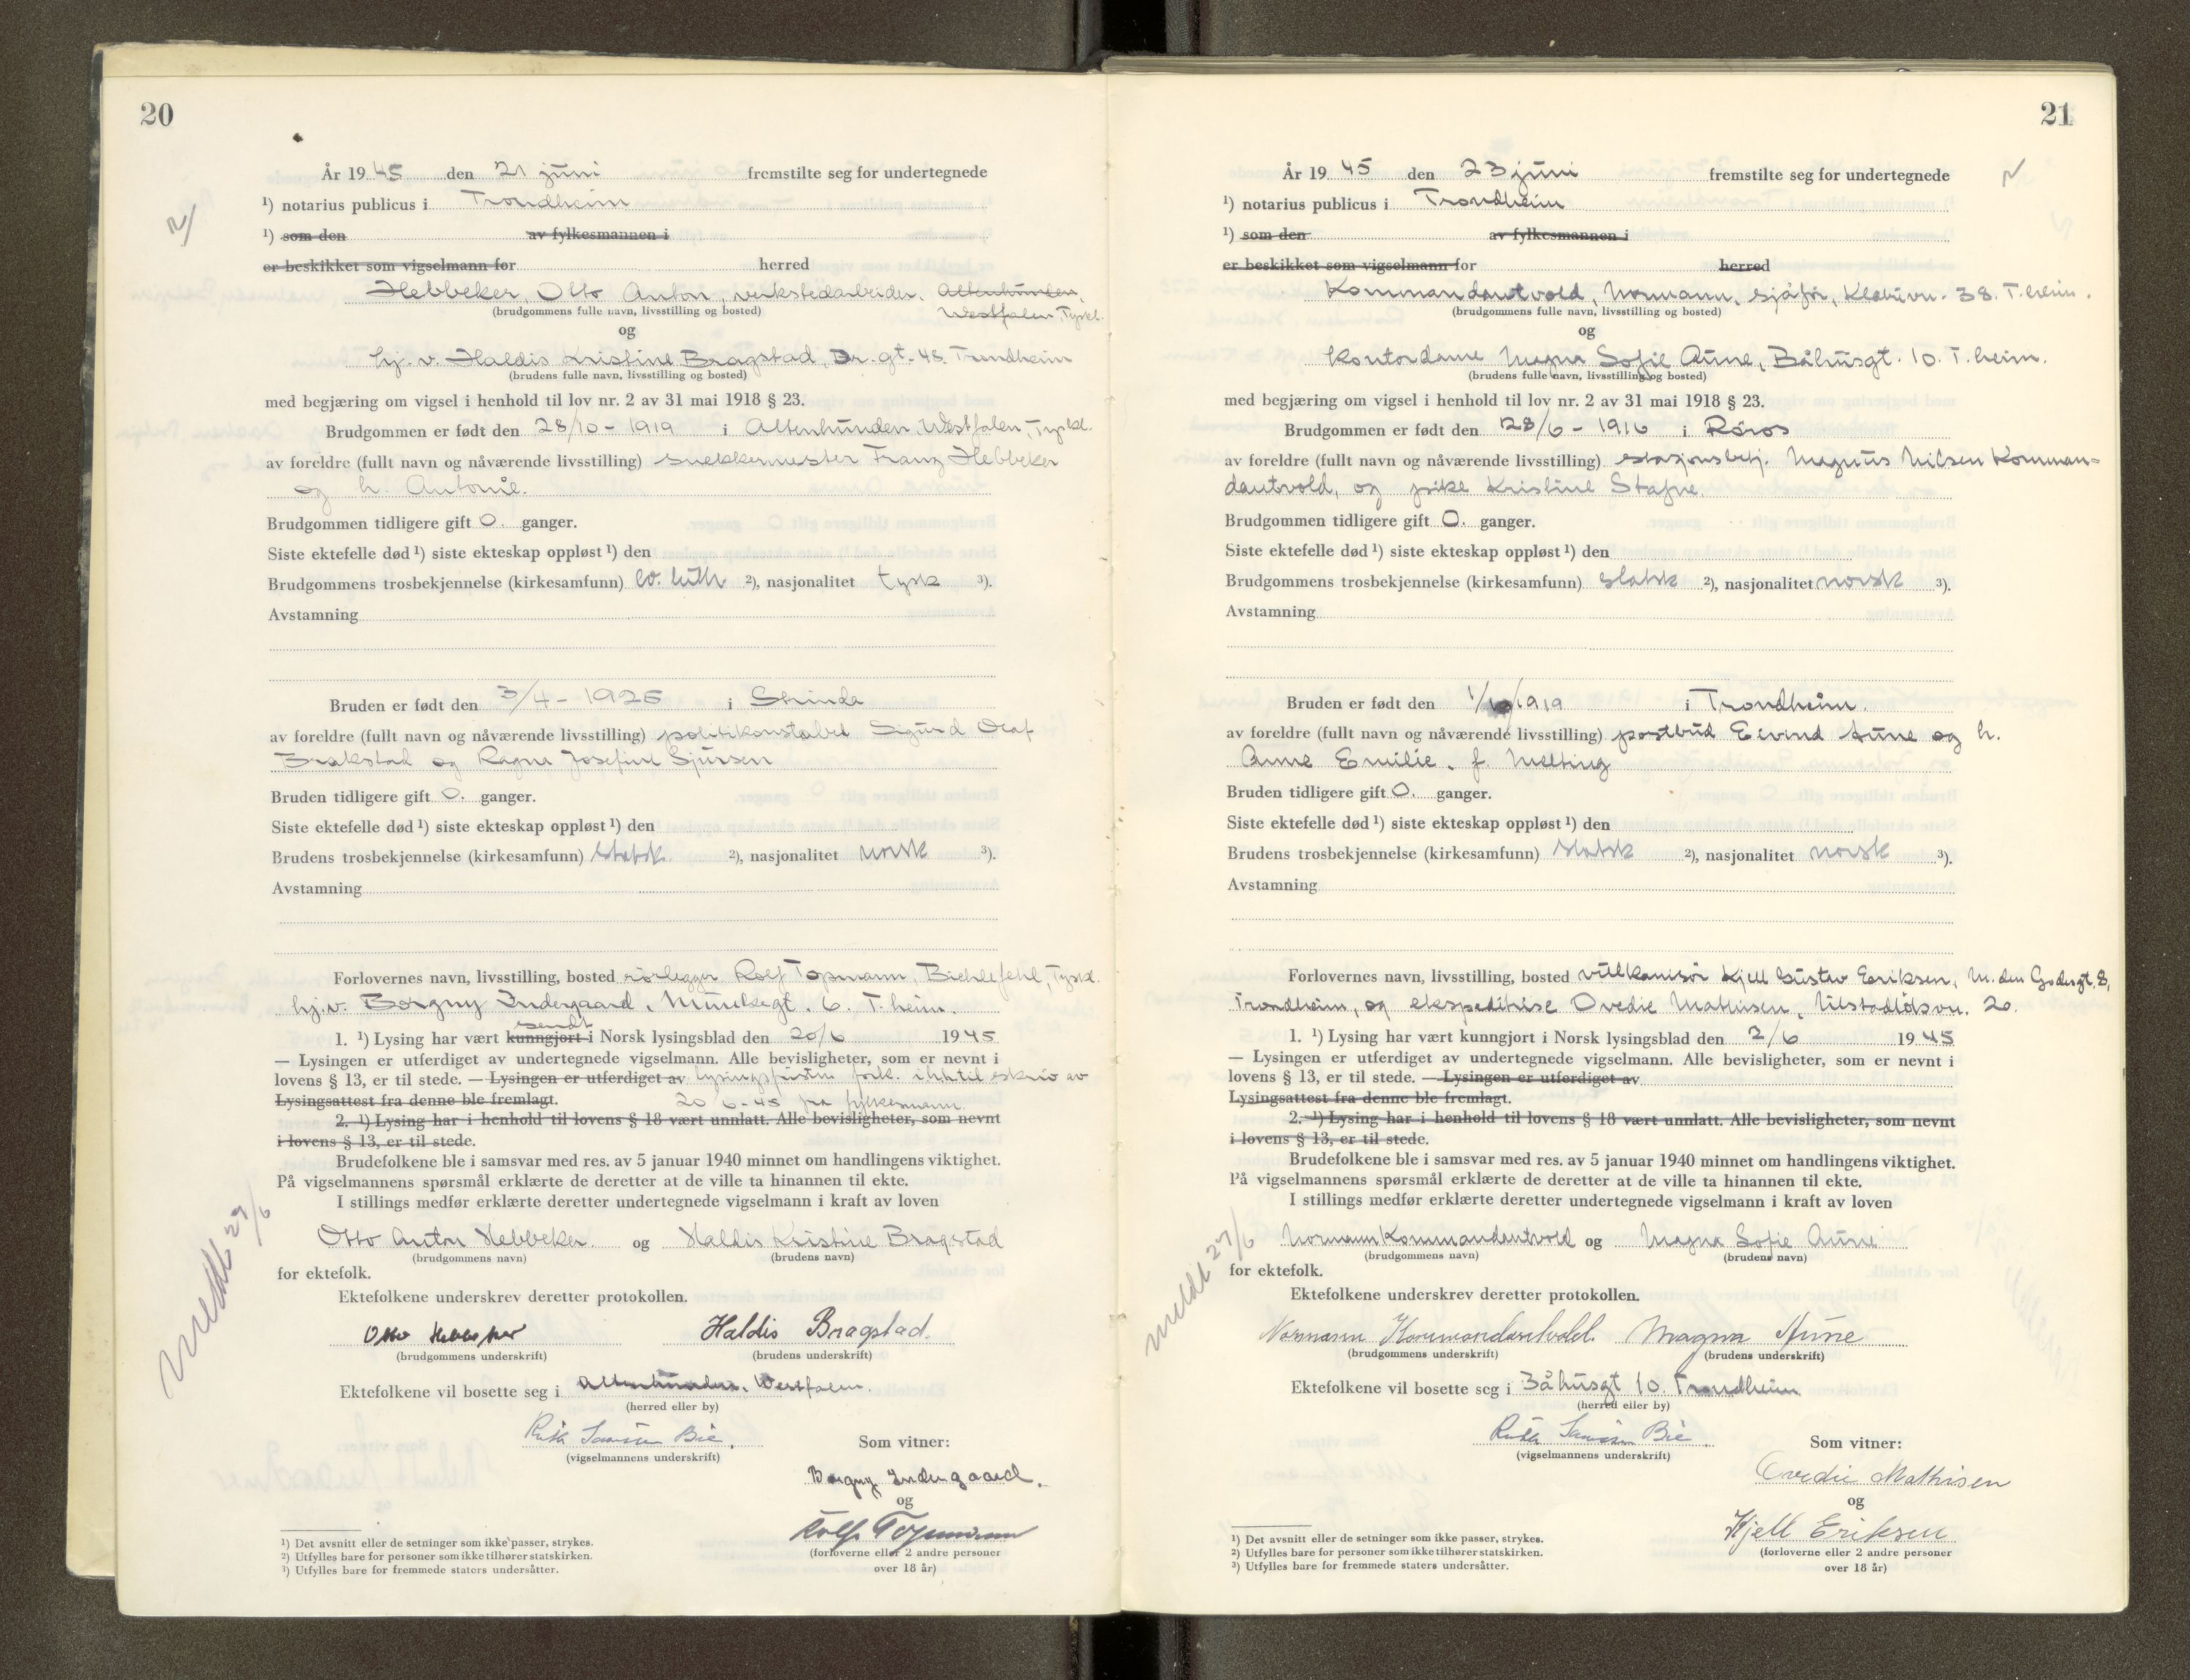 20
År 19 45 den 21 juni fremstilte seg for undertegnede
¹) notarius publicus i Trondheim
¹) som den av fylkesmannen i
er beskikket som vigselmann for herred
Hebbeker, Otto Anton, verkstedarbeider. Altenhunden,
Westfalen, Tyskl.
(brudgommens fulle navn, livsstilling og bosted)
og
hj. v. Haldis Kristine Bragstad, Dr. gt. 48. Trondheim
(brudens fulle navn, livsstilling og bosted)
med begjæring om vigsel i henhold til lov nr. 2 av 31 mai 1918 § 23.
Brudgommen er født den 28/10 - 1919 i Altenhunden, Westfalen, Tyskl.
av foreldre (fullt navn og nåværende livsstilling) snekkermester Franz Hebbeker
og h. Antonie.
Brudgommen tidligere gift 0. ganger.
Siste ektefelle død ¹) siste ekteskap oppløst ¹) den
Brudgommens trosbekjennelse (kirkesamfunn) ev. luth ²), nasjonalitet tysk ³).
Avstamning
Bruden er født den 3/4 - 1925 i Strinda
av foreldre (fullt navn og nåværende livsstilling) politikonstabel Sigurd Olaf
Brakstad og Ragna Josefine Sjursen
Bruden tidligere gift 0. ganger.
Siste ektefelle død ¹) siste ekteskap oppløst ¹) den
Brudens trosbekjennelse (kirkesamfunn) statsk. ²), nasjonalitet norsk ³).
Avstamning
Forlovernes navn, livsstilling, bosted rørlegger Rolf Topmann, Tyskl.
hj.v. Borgny Indergaard, Munkegt. 6. T.heim.
sendt
1. ¹) Lysing har vært kunngjort i Norsk lysingsblad den 20/6 1945
— Lysingen er utferdiget av undertegnede vigselmann. Alle bevisligheter, som er nevnt i
lovens § 13, er til stede. — Lysingen er utferdiget av lysingsfristen fork. i h.h.til skriv av
Lysingsattest fra denne ble fremlagt. 20/6-45 fra fylkesmann.
2. ¹) Lysing har i henhold til lovens § 18 vært unnlatt. Alle bevisligheter, som nevnt
i lovens § 13, er til stede.
Brudefolkene ble i samsvar med res. av 5 januar 1940 minnet om handlingens viktighet.
På vigselmannens spørsmål erklærte de deretter at de ville ta hinannen til ekte.
I stillings medfør erklærte deretter undertegnede vigselmann i kraft av loven
Otto Anton Hebbeker og Haldis Kristine Bragstad
(brudgommens navn) (brudens navn)
for ektefolk.
meldt 27/6
Ektefolkene underskrev deretter protokollen.
Otto Hebbeker Haldis Bragstad.
(brudgommens underskrift) (brudens underskrift)
Ektefolkene vil bosette seg i Altenhunden, Westfalen.
(herred eller by)
Bie.
(vigselmannens underskrift)
Som vitner:
Borgny Indergaard.
og
Rolf Topmann
(forloverne eller 2 andre personer
over 18 år)
¹) Det avsnitt eller de setninger som ikke passer, strykes.
²) Utfylles bare for personer som ikke tilhører statskirken.
³) Utfylles bare for fremmede staters undersåtter.
21
År 19 45 den 23 juni fremstilte seg for undertegnede
¹) notarius publicus i Trondheim
¹) som den av fylkesmannen i
er beskikket som vigselmann for herred
Kommandantvold, Normann, sjåfør, Klæbuvn. 38. T.heim.
(brudgommens fulle navn, livsstilling og bosted)
og
Kontordame Magna Sofie Aune, Båhusgt. 10. T.heim.
(brudens fulle navn, livsstilling og bosted)
med begjæring om vigsel i henhold til lov nr. 2 av 31 mai 1918 § 23.
Brudgommen er født den 28/6 - 1916 i Røros
av foreldre (fullt navn og nåværende livsstilling) stasjonsbetj. Magnus Nilsen Komman=
dantvold, og pike Kristine Stafne.
Brudgommen tidligere gift 0. ganger.
Siste ektefelle død ¹) siste ekteskap oppløst ¹) den
Brudgommens trosbekjennelse (kirkesamfunn) statsk ²), nasjonalitet norsk ³).
Avstamning
Bruden er født den 1/10 1919 i Trondheim.
av foreldre (fullt navn og nåværende livsstilling) postbud Eivind Aune og h.
Anne Emilie, f. Melting
Bruden tidligere gift 0. ganger.
Siste ektefelle død ¹) siste ekteskap oppløst ¹) den
Brudens trosbekjennelse (kirkesamfunn) statsk ²), nasjonalitet norsk ³).
Avstamning
Forlovernes navn, livsstilling, bosted vulkanisør Kjell Gustav Eriksen, M. den Godesgt. 8,
Trondheim, og ekspeditrise Ovedie Mathisen, 20.
1. ¹) Lysing har vært kunngjort i Norsk lysingsblad den 2/6 1945
— Lysingen er utferdiget av undertegnede vigselmann. Alle bevisligheter, som er nevnt i
lovens § 13, er til stede. — Lysingen er utferdiget av
Lysingsattest fra denne ble fremlagt.
2. ¹) Lysing har i henhold til lovens § 18 vært unnlatt. Alle bevisligheter, som nevnt
i lovens § 13, er til stede.
Brudefolkene ble i samsvar med res. av 5 januar 1940 minnet om handlingens viktighet.
På vigselmannens spørsmål erklærte de deretter at de ville ta hinannen til ekte.
I stillings medfør erklærte deretter undertegnede vigselmann i kraft av loven
Normann Kommandantvold og Magna Sofie Aune
(brudgommens navn) (brudens navn)
for ektefolk.
meldt 27/6
Ektefolkene underskrev deretter protokollen.
Normann Kommandantvold. Magna Aune
(brudgommens underskrift) (brudens underskrift)
Ektefolkene vil bosette seg i Båhusgt 10. Trondheim
(herred eller by)
Bie.
(vigselmannens underskrift)
Som vitner:
Ovedie Mathisen
og
Kjell Eriksen
(forloverne eller 2 andre personer
over 18 år)
¹) Det avsnitt eller de setninger som ikke passer, strykes.
²) Utfylles bare for personer som ikke tilhører statskirken.
³) Utfylles bare for fremmede staters undersåtter.